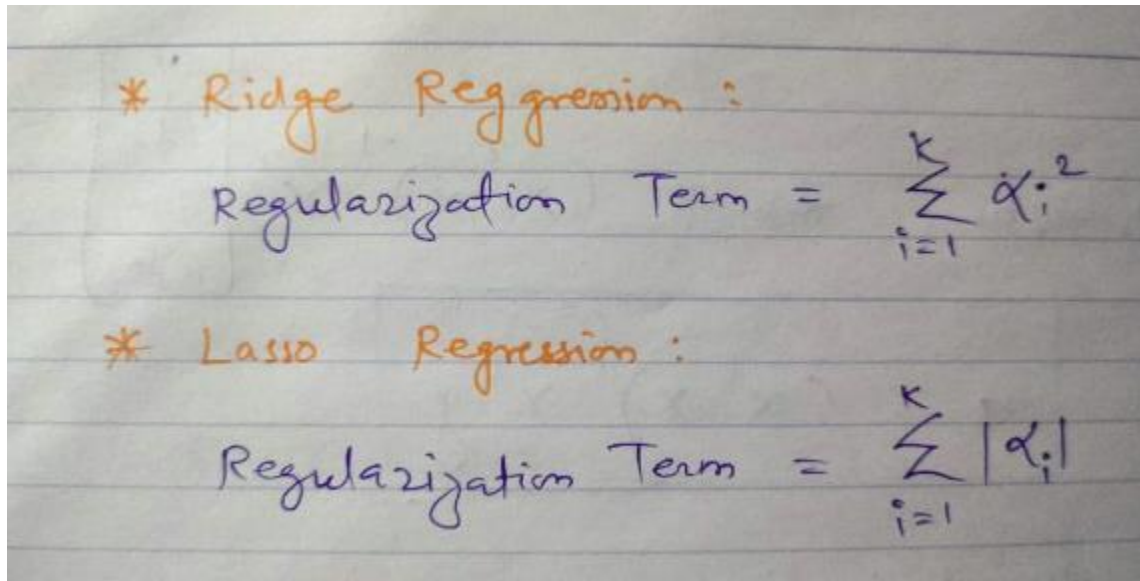 * Ridge Reggression :
Regularization Term = K ∑ i=1 αi²
* Lasso Regression :
Regularization Term = K ∑ i=1 |αi|